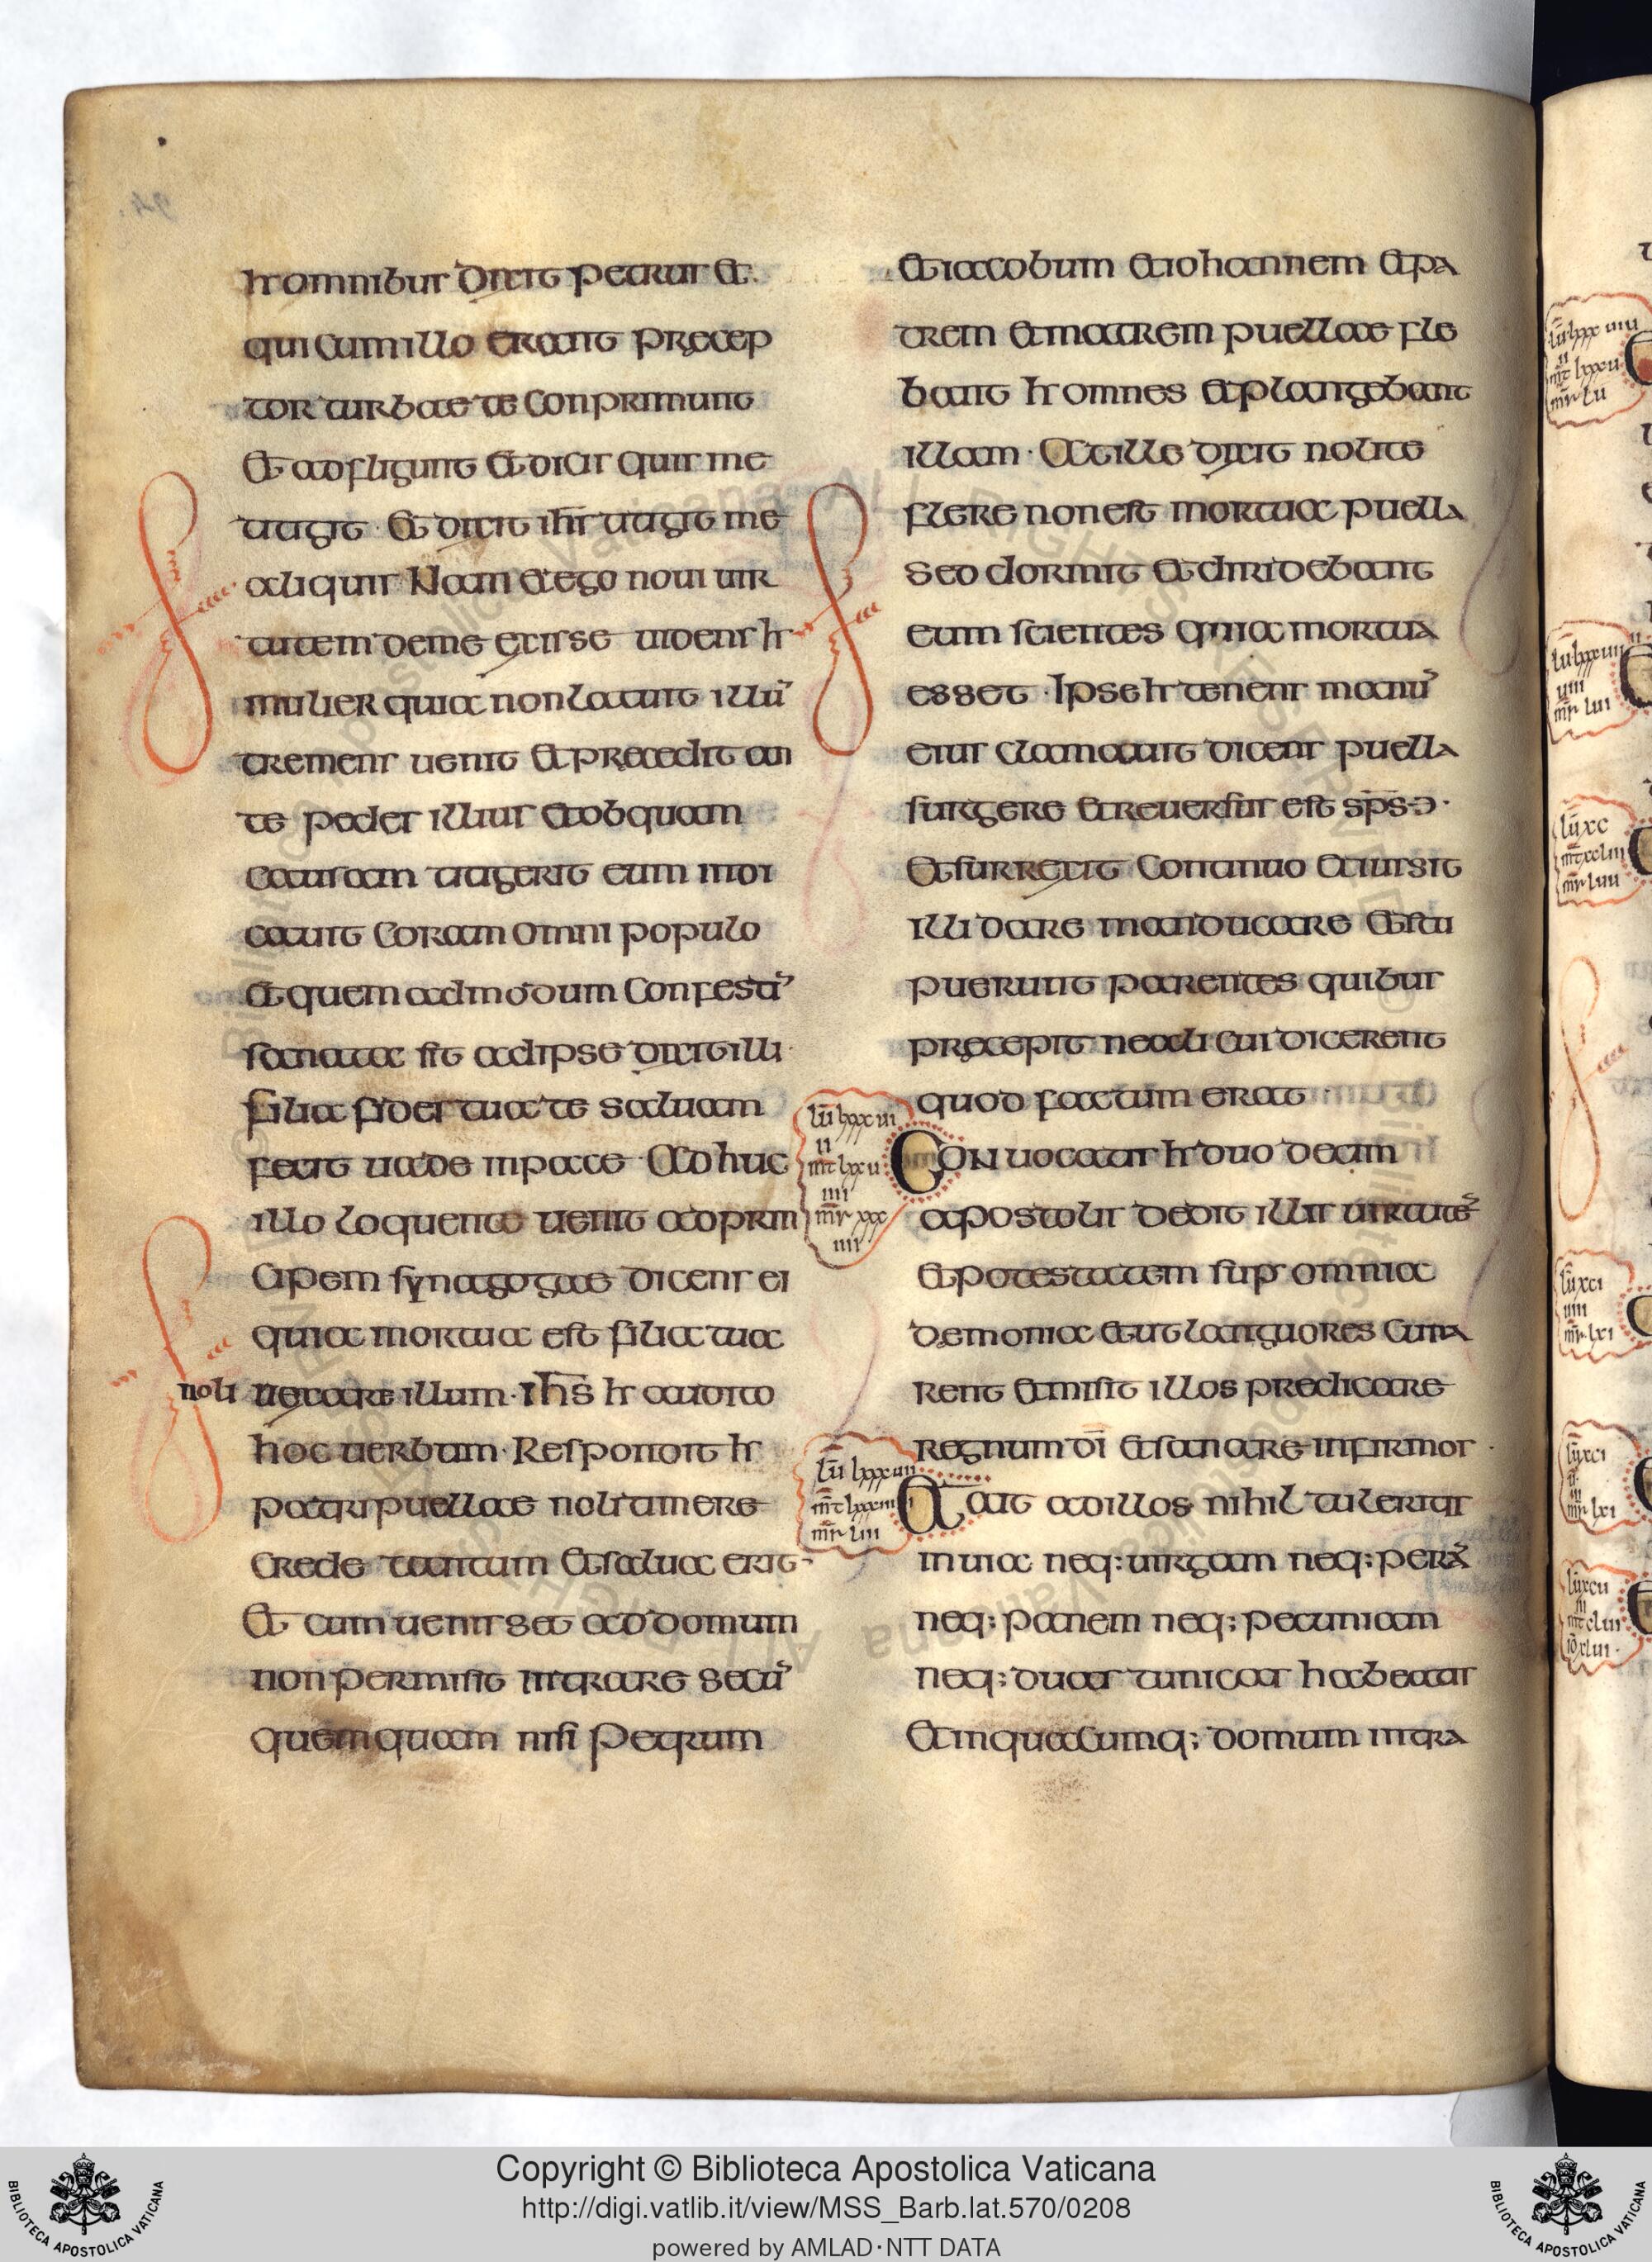 hr omnibus dixit petrus et
qui cum illo erant precep
tor turbae te conprimunt
et adfligunt et dicis quis me
tetigit · et dixit ihs tetigit me
aliquis Nam et ego noui uir
tutem de me exisse uidens hr
mulier quia non latuit illū
tremens uenit et precedit an
te pedes illius et ob quam
causam tetigerit eum indi
cauit coram omni populo
et quem ad modum confestī
sanata sit ad ipse dixit illi
filia fides tua te saluam
fecit uade in pace · Ad huc
illo loquente uenit ad prin
cipem synagogae dicens ei
quia mortua est filia tua
noli uexare illum · ihs hr audito
hoc uerbum · Respondit hr
patri puellae noli timere
crede tantum et salua erit
Et cum uenisset ad domum
non permisit intrare secū
quemquam nisi Petrum
et iacobum et iohannem et pa
trem et matrem puellae fle
bant hr omnes et plangebant
illam · At ille dixit nolite
flere non est mortua puella
sed dormit et diridebant
eum scientes quia mortua
esset · Ipse hr tenens manū
eius clamauit dicens puella
surgere et reuersus est sps ·
et surrexit continuo et iussit
illi dare manducare et stu
puerunt parentes quibus
precepit ne alicui dicerent
quod factum erat ·
lū lxxxui
ii
mt lxxu
iiii
mr xxx
iiii
Con uocatis hr duodecim
apostolis dedit illis uirtutē
et potestatem sup omnia
demonia et ut languores cura
rent et misit illos predicare
regnum di et sanare infirmos ·
lū lxxxuii
mr liii
Et ait ad illos nihil tuleritis
in uia neq; uirgam neq; perā
neq; panem neq; pecuniam
neq; duas tunicas habeatis
et in quacumq; domum intra
Copyright © Biblioteca Apostolica Vaticana
http://digi.vatlib.it/view/MSS_Barb.lat.570/0208
powered by AMLAD·NTT DATA
BIBLIOTECA APOSTOLICA VATICANA
BIBLIOTECA APOSTOLICA VATICANA